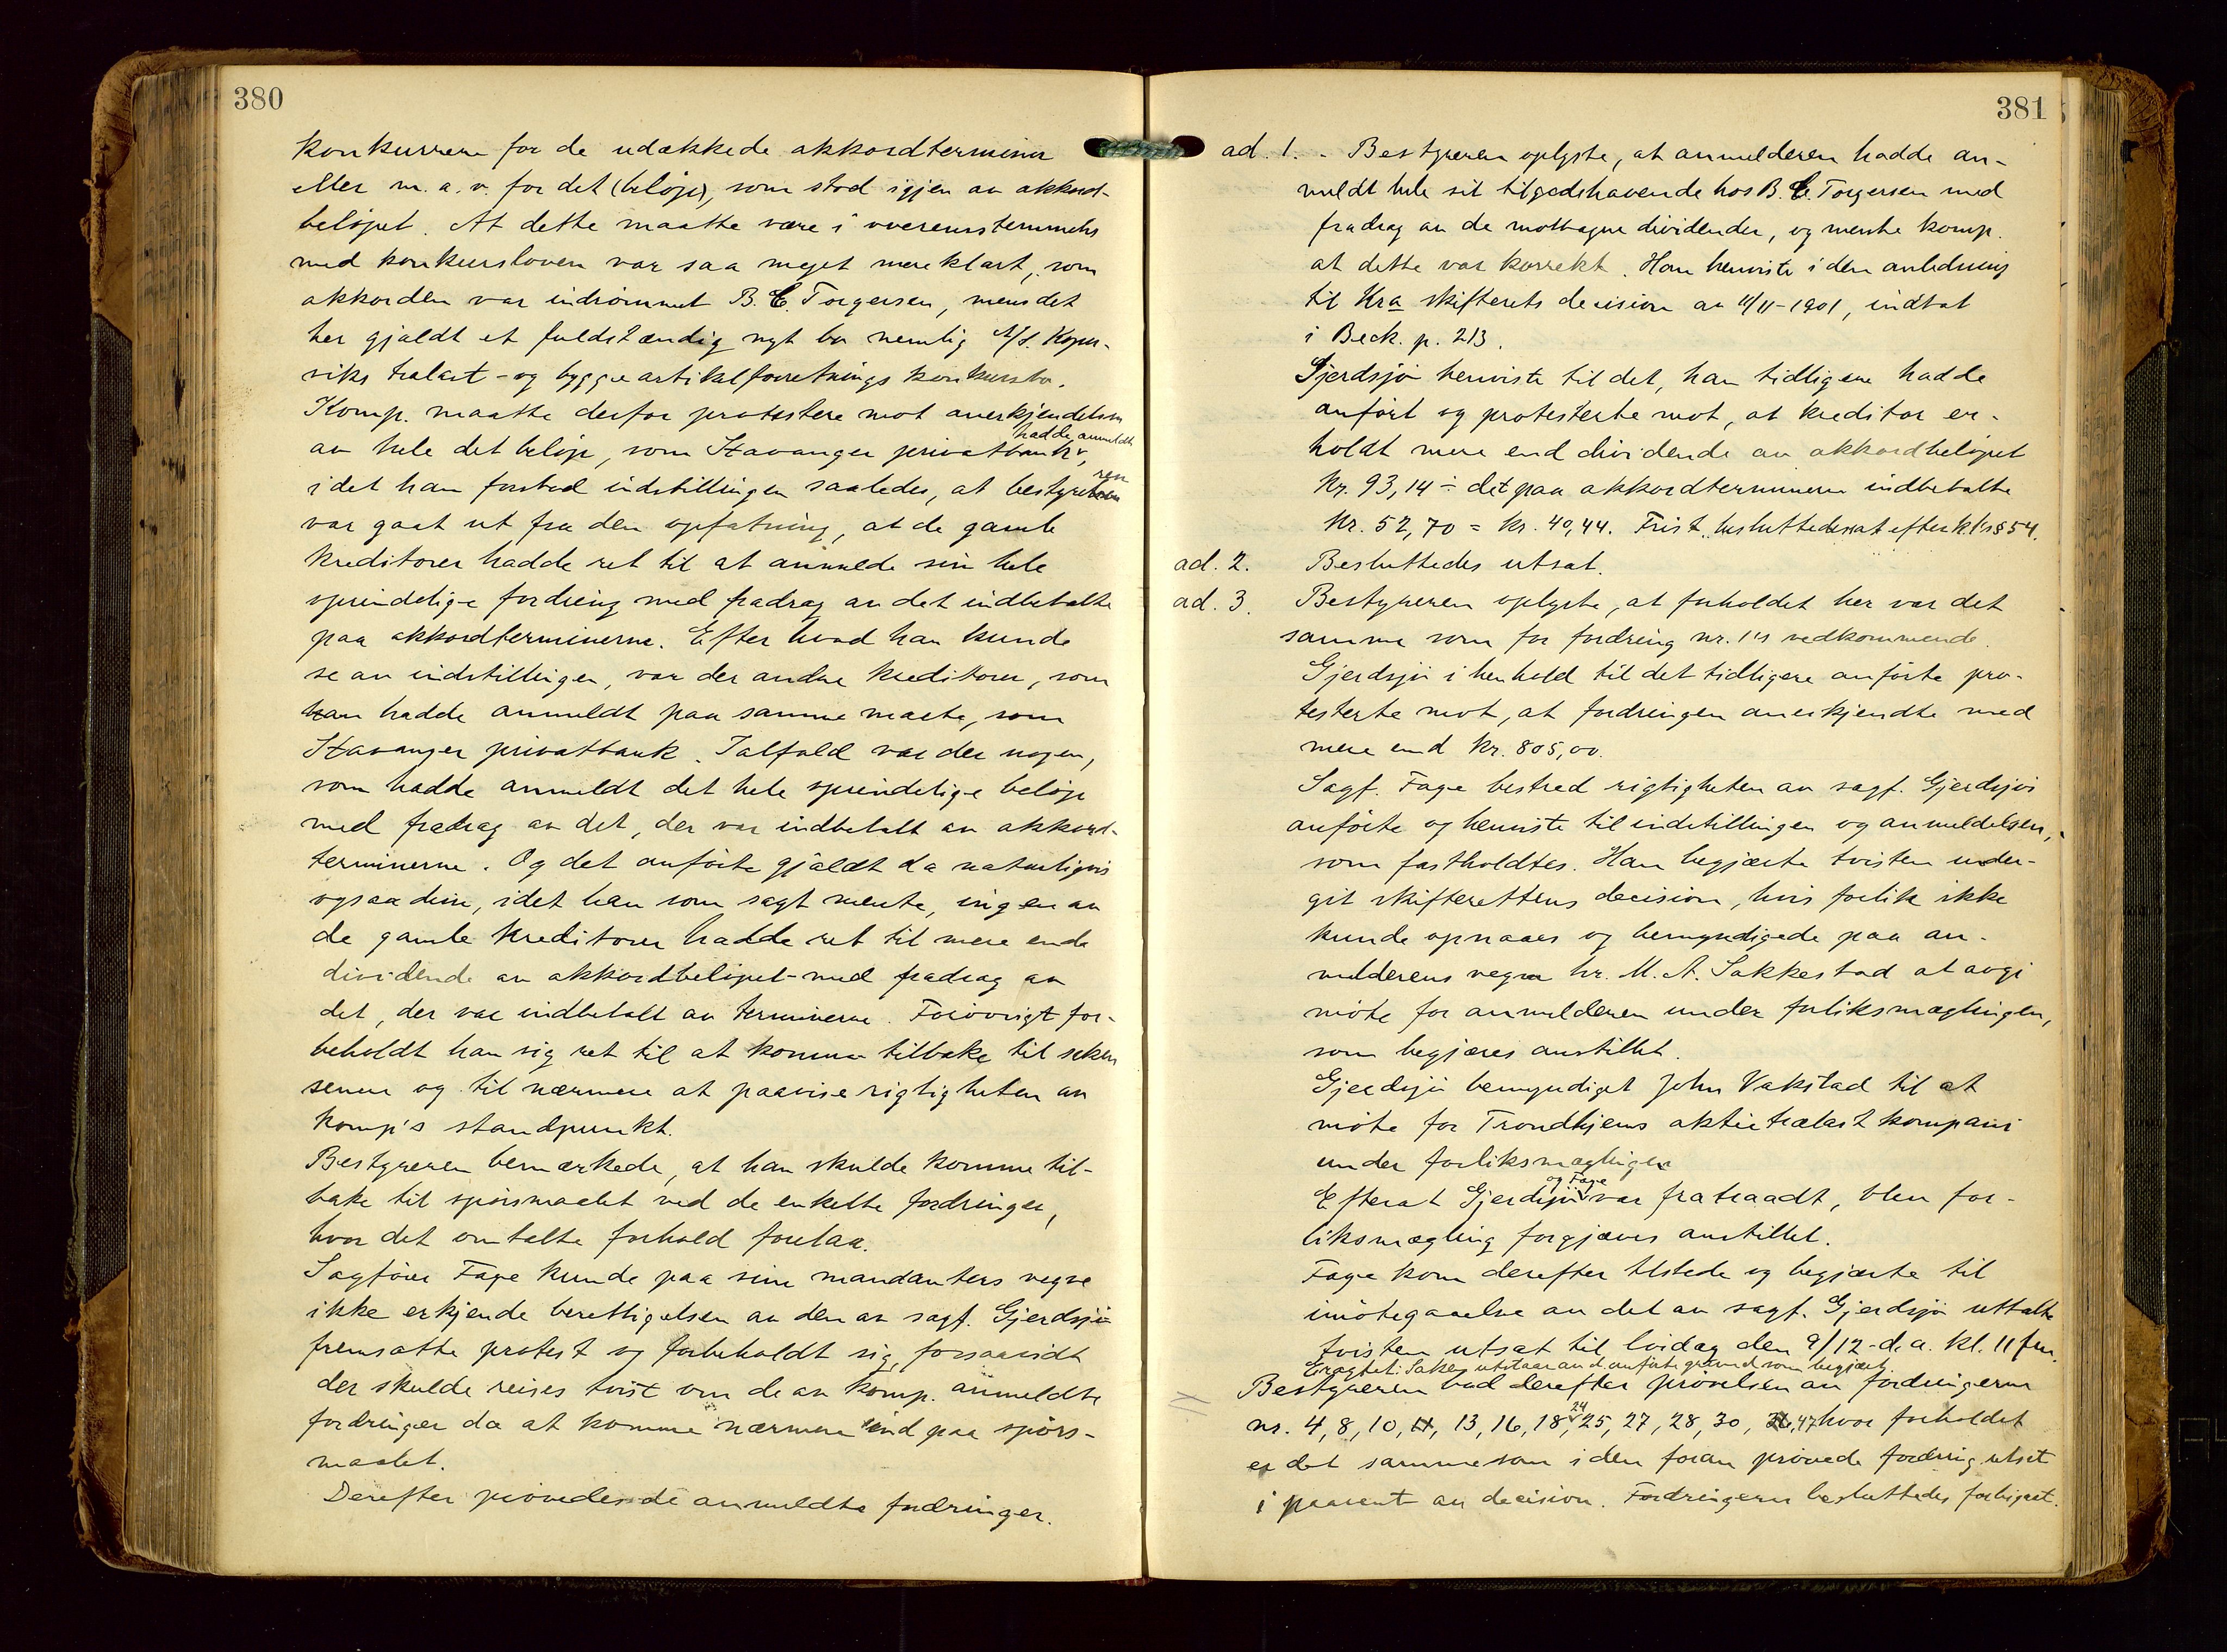 380
konkurrere for de udækkede akkordterminer
eller m. a. o. for det (beløp), som stod igjen av akkord-
beløpet. At dette maatte være i overensstemmelse
med konkursloven var saa meget mere klart, som
akkorden var indrømmet B. C. Torgersen, mens det
her gjaldt et fuldstændig nyt bo nemlig A/S. Koper-
viks trælast- og byggeartikelforretnings konkursbo.
Komp. maatte derfor protestere mot anerkjendelsen
hadde anmeldt
av hele det beløp, som Stavanger privatbank,
idet han forstod indstillingen saaledes, at bestyreren
var gaat ut fra den opfatning, at de gamle
kreditorer hadde ret til at anmelde sin hele
oprindelige fordring med fradrag av det indbetalte
paa akkordterminerne. Efter hvad han kunde
se av indstillingen, var der andre kreditorer, som
hadde anmeldt paa samme maate, som
Stavanger privatbank. Ialfald var der nogen,
som hadde anmeldt det hele oprindelige beløp
med fradrag av det, der var indbetalt av akkord-
terminerne. Og det anførte gjaldt da naturligvis
ogsaa disse, idet han som sagt mente, ingen av
de gamle kreditorer hadde ret til mere end
dividende av akkordbeløpet med fradrag av
det, der var indbetalt av terminerne. Forøvrigt for-
beholdt han sig ret til at komme tilbake til saken
senere og til nærmere at paavise rigtigheten av
komp's standpunkt.
Bestyreren bemærkede, at han skulde komme til-
bake til spørsmaalet ved de enkelte fordringer,
hvor det omtalte forhold forelaa.
Sagfører Fage kunde paa sine mandanters vegne
ikke erkjende berettigelsen av den av sagf. Gjerdsjø
fremsatte protest og forbeholdt sig forsaavidt
der skulde reises tvist om de av komp. anmeldte
fordringer da at komme nærmere ind paa spørs-
maalet.
Derefter prøvedes de anmeldte fordringer.
381
ad. 1. Bestyreren oplyste, at anmelderen hadde an-
meldt hele sit tilgodehavende hos B. C. Torgersen med
fradrag av de mottagne dividender, og mente komp.
at dette var korrekt. Han henviste i den anledning
til Kra skifterets decision av 11/11-1901, indtat
i Beck. p. 213.
Gjerdsjø henviste til det, han tidligere hadde
anført og protesterte mot, at kreditor er-
holdt mere end dividende av akkordbeløpet
Kr. 93,14 ÷ det paa akkordterminerne indbetalte
Kr. 52,70 = kr. 40,44. Tvist, besluttedes utsat efter k.l's § 54.
ad. 2. Besluttedes utsat.
ad. 3. Bestyreren oplyste, at forholdet her var det
samme som for fordring nr. 1's vedkommende.
Gjerdsjø i henhold til det tidligere anførte pro-
testerte mot, at fordringen anerkjendtes med
mere end kr. 805,00.
Sagf. Fage bestred rigtigheten av sagf. Gjerdsjøs
anførte og henviste til indstillingen og anmeldelsen,
som fastholdtes. Han begjærte tvisten under-
git skifterettens decision, hvis forlik ikke
kunde opnaaes og bemyndigede paa an-
melderens vegne hr. M. A. Sakkestad at avgi
møte for anmelderen under forliksmæglingen,
som begjæres anstillet.
Gjerdsjø bemyndiget John Vakstad til at
møte for Trondhjems aktietrælastkompani
under forliksmæglingen
og Fage
Efterat Gjerdsjø var fratraadt, blev for-
liksmægling forgjæves anstillet.
Fage kom derefter tilstede og begjærte til
imøtegaaelse av det av sagf. Gjerdsjø uttalte
tvisten utsat til lørdag den 9/12 d. a. kl. 11 fm.
Eragtet: Saken utstaar av d. anførte grund som begjært.
Bestyreren bad derefter prøvelsen av fordringerne
24
nr. 4, 8, 10, 11, 13, 16, 18, 25, 27, 28, 30, 47 hvor forholdet
er det samme som i den foran prøvede fordring utsat
i paavent av decision. Fordringerne besluttedes forbigaat.